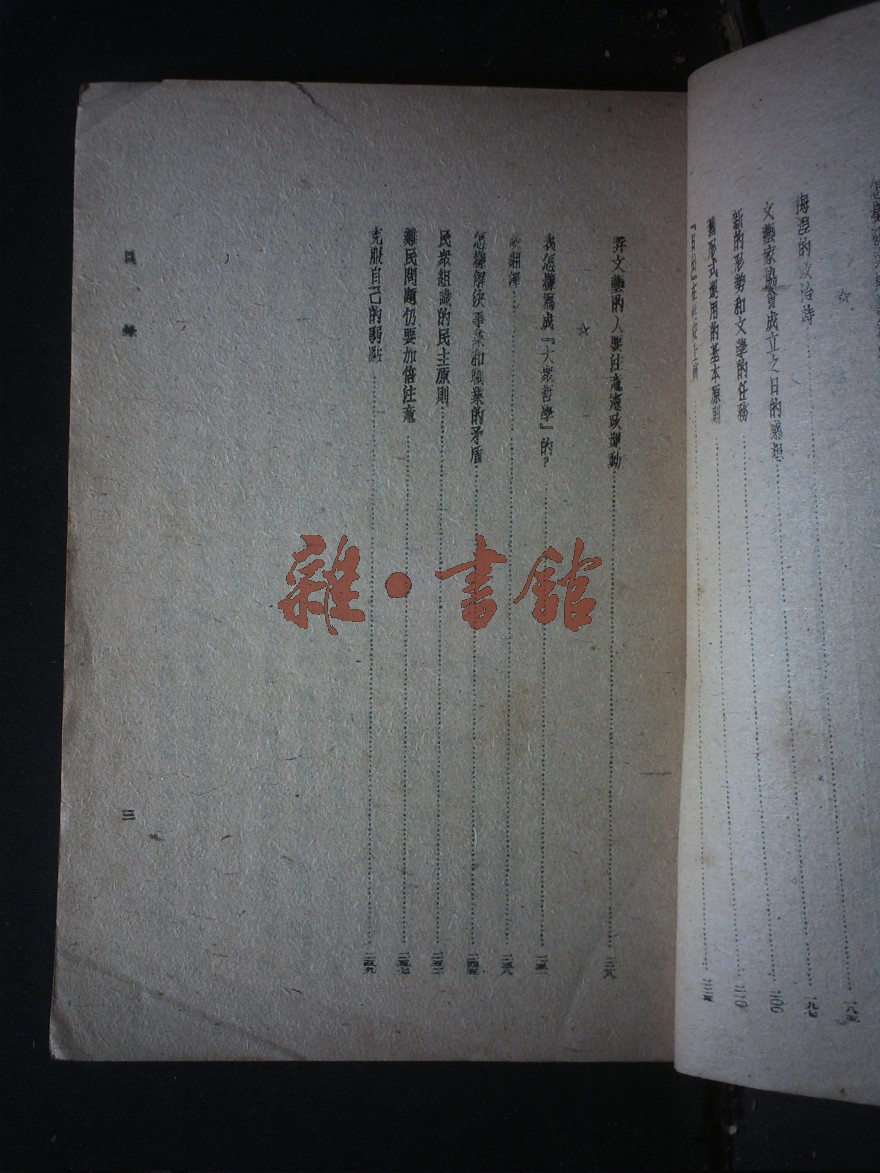 海涅的政治詩……一九七
文藝家協會成立之日的感想……二〇六
新的形勢和文學的任務……二一〇
舊形式運用的基本原則
弄文藝的人要注意憲政運動……二二八
☆
我怎樣寫成『大衆哲學』的？……二三一
談翻譯……二三八
怎樣解決事業和職業的矛盾……二四五
民衆組識的民主原則……二五二
難民問題仍要加倍注意……二五七
克服自己的弱點……二五九
目錄
三
雜·書館